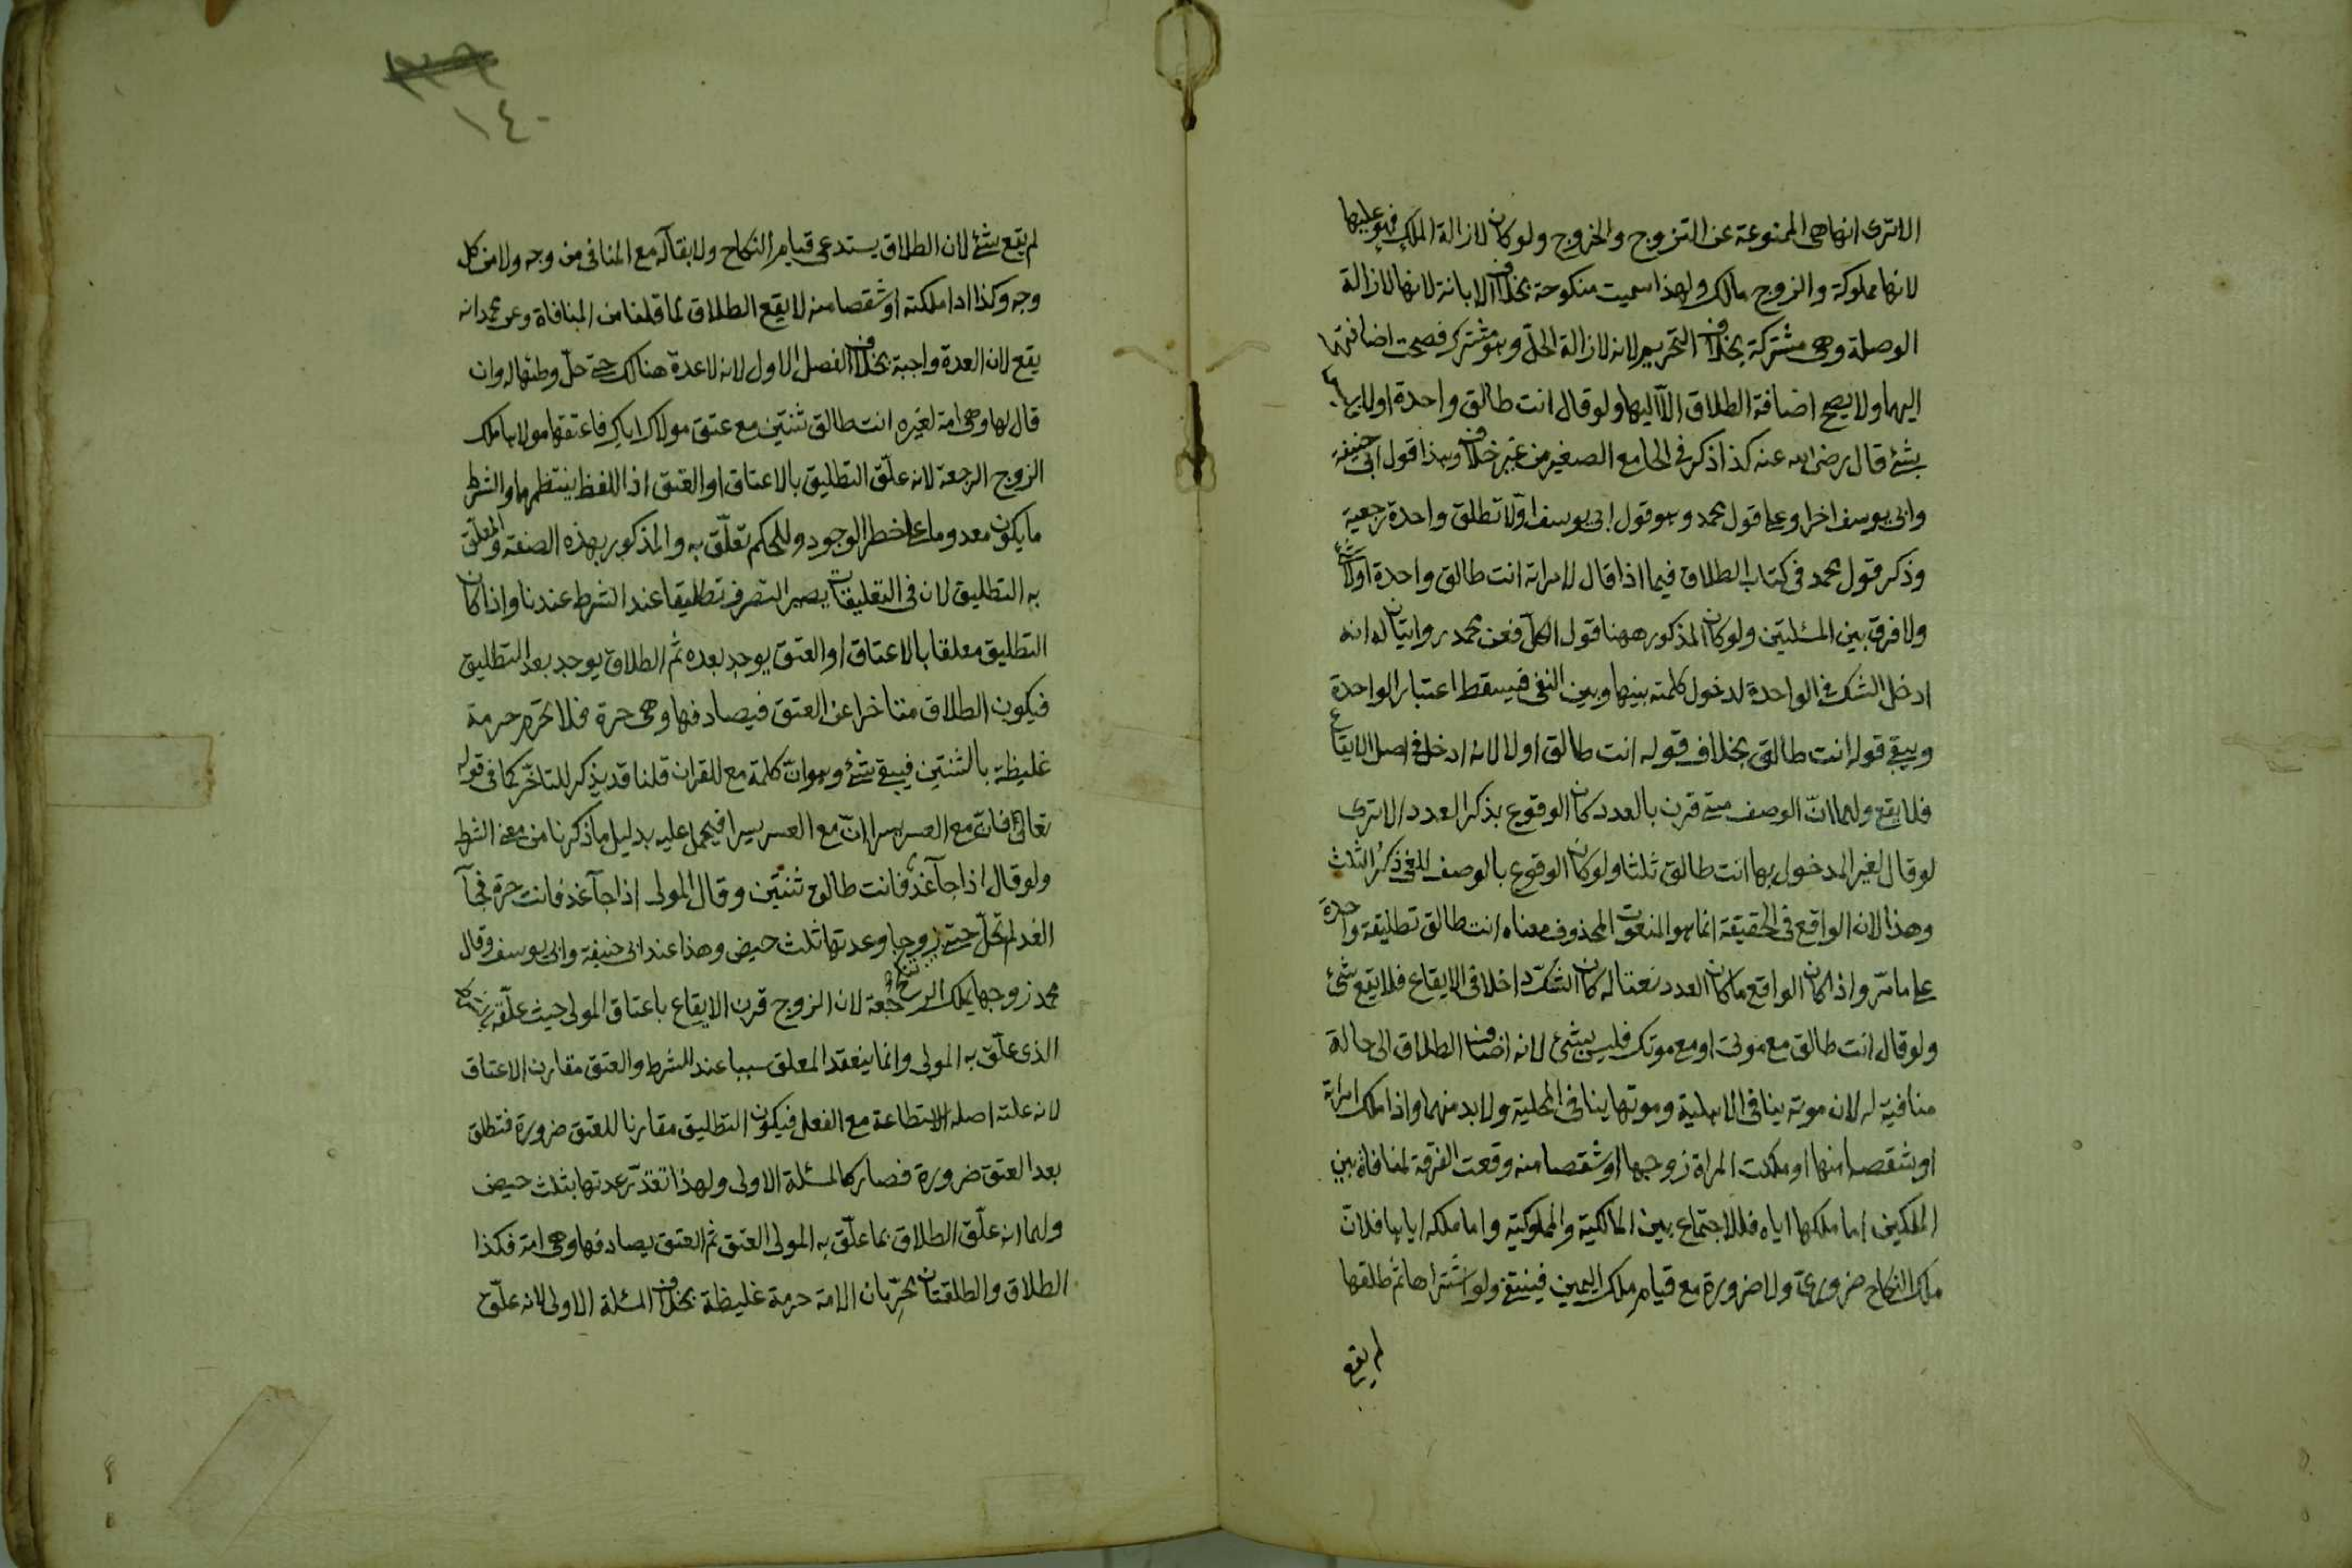 الا ترى انها هى الممنوعة عن التزوج والخروج ولو كان لازالة الملك فهو عليها
لانها مملوكة والزوج مالك ولهذا سميت منكوحة بخلاف الابانة لانها لازالة
الوصلة وهى مشتركة بخلاف التحريم لانه لازالة الحلّ وهو مشترك فصحت اضافتهما
اليهما ولا يصح اضافة الطلاق الّا اليها ولو قال انت طالق واحدة اولا فليس
بشئ قال رضى الله عنه كذا ذكر فى الجامع الصغير من غير خلاف وهذا قول ابى حنيفة
وابى يوسف اخرا وعلى قول محمد وهو قول ابى يوسف اوّلا تطلق واحدة رجعية
وذكر قول محمد فى كتاب الطلاق فيما اذا قال لامراته انت طالق واحدة اولا شئ
ولا فرق بين المسئلتين ولو كان المذكور ههنا قول الكلّ فعن محمد روايتان له انه
ادخل الشك فى الواحدة لدخول كلمته بينها وبين النفى فيسقط اعتبار الواحدة
ويبقى قوله انت طالق بخلاف قوله انت طالق اولا لانه ادخل فى اصل الايقاع
فلا يقع ولهما انّ الوصف متى قرن بالعدد كان الوقوع بذكر العدد الا ترى
لو قال لغير المدخول بها انت طالق ثلثا ولو كان الوقوع بالوصف للغى ذكر الثلث
وهذا لان الواقع فى الحقيقة انما هو المنعوت المحذوف معناه انت طالق تطليقة واحدة
على ما مرّ واذا كان الواقع ما كان العدد نعتا له كان الشك داخلا فى الايقاع فلا يقع شئ
ولو قال انت طالق مع موتى او مع موتك فليس بشئ لانه اضاف الطلاق الى حالة
منافية له لان موته ينافى الاهلية وموتها ينافى المحلية ولا بد منهما واذا ملك امراته
او شقصا منها او ملكت المراة زوجها او شقصا منه وقعت الفرقة لمنافاة بين
الملكين اما ملكها اياه فللاجتماع بين المالكية والمملوكية واما ملكه اياها فلانّ
ملك النكاح ضرورى ولا ضرورة مع قيام ملك اليمين فينتفى ولو اشتراها ثم طلقها
لم يقع
١٤٠
لم يقع شئ لان الطلاق يستدعى قيام النكاح ولا بقآ له مع المنافى من وجه ولا من كل
وجه وكذا اذا ملكته او شقصا منه لا يقع الطلاق لما قلنا من المنافاة وعن محمد انه
يقع لان العدة واجبة بخلاف الفصل الاول لانه لا عدّة هنالك حتى حلّ وطئها له وان
قال لها وهى امة لغيره انت طالق ثنتين مع عتق مولاك اياك فاعتقها مولاها ملك
الزوج الرجعة لانه علّق التطليق بالاعتاق او العتق اذ اللفظ ينتظمهما والشرط
ما يكون معدوما على خطر الوجود وللحكم تعلّق به والمذكور بهذه الصفة والمعلّق
به التطليق لان فى التعليقات يصير التصرف تطليقا عند الشرط عندنا واذا كان
التطليق معلقا بالاعتاق او العتق يوجد بعده ثم الطلاق يوجد بعد التطليق
فيكون الطلاق متاخرا عن العتق فيصادفها وهى حرة فلا تحرم حرمة
غليظة بالثنتين فيبقى شئ وهو انّ كلمة مع للقران قلنا قد يذكر للتاخّر كما فى قوله
تعالى فانّ مع العسر يسرا انّ مع العسر يسرا فيحمل عليه بدليل ما ذكرنا من معنى الشرط
ولو قال اذا جآ غد فانت طالق ثنتين وقال المولى اذا جآ غد فانت حرة فجآ
الغد لم تحلّ حتى تنكح زوجا وعدتها ثلث حيض وهذا عند ابى حنيفة وابى يوسف وقال
محمد زوجها يملك الرجعة لان الزوج قرن الايقاع باعتاق المولى حيث علّقه بالشرط
الذى علّق به المولى وانما ينعقد المعلق سببا عند الشرط والعتق مقارن الاعتاق
لانه علته اصله الاستطاعة مع الفعل فيكون التطليق مقارنا للعتق ضرورة فتطلق
بعد العتق ضرورة فصار كالمسئلة الاولى ولهذا تقدّر عدتها بثلث حيض
ولهما انه علّق الطلاق بما علّق به المولى العتق ثم العتق يصادفها وهى امة فكذا
الطلاق والطلقتان تحرّمان الامة حرمة غليظة بخلاف المسئلة الاولى لانه علّق